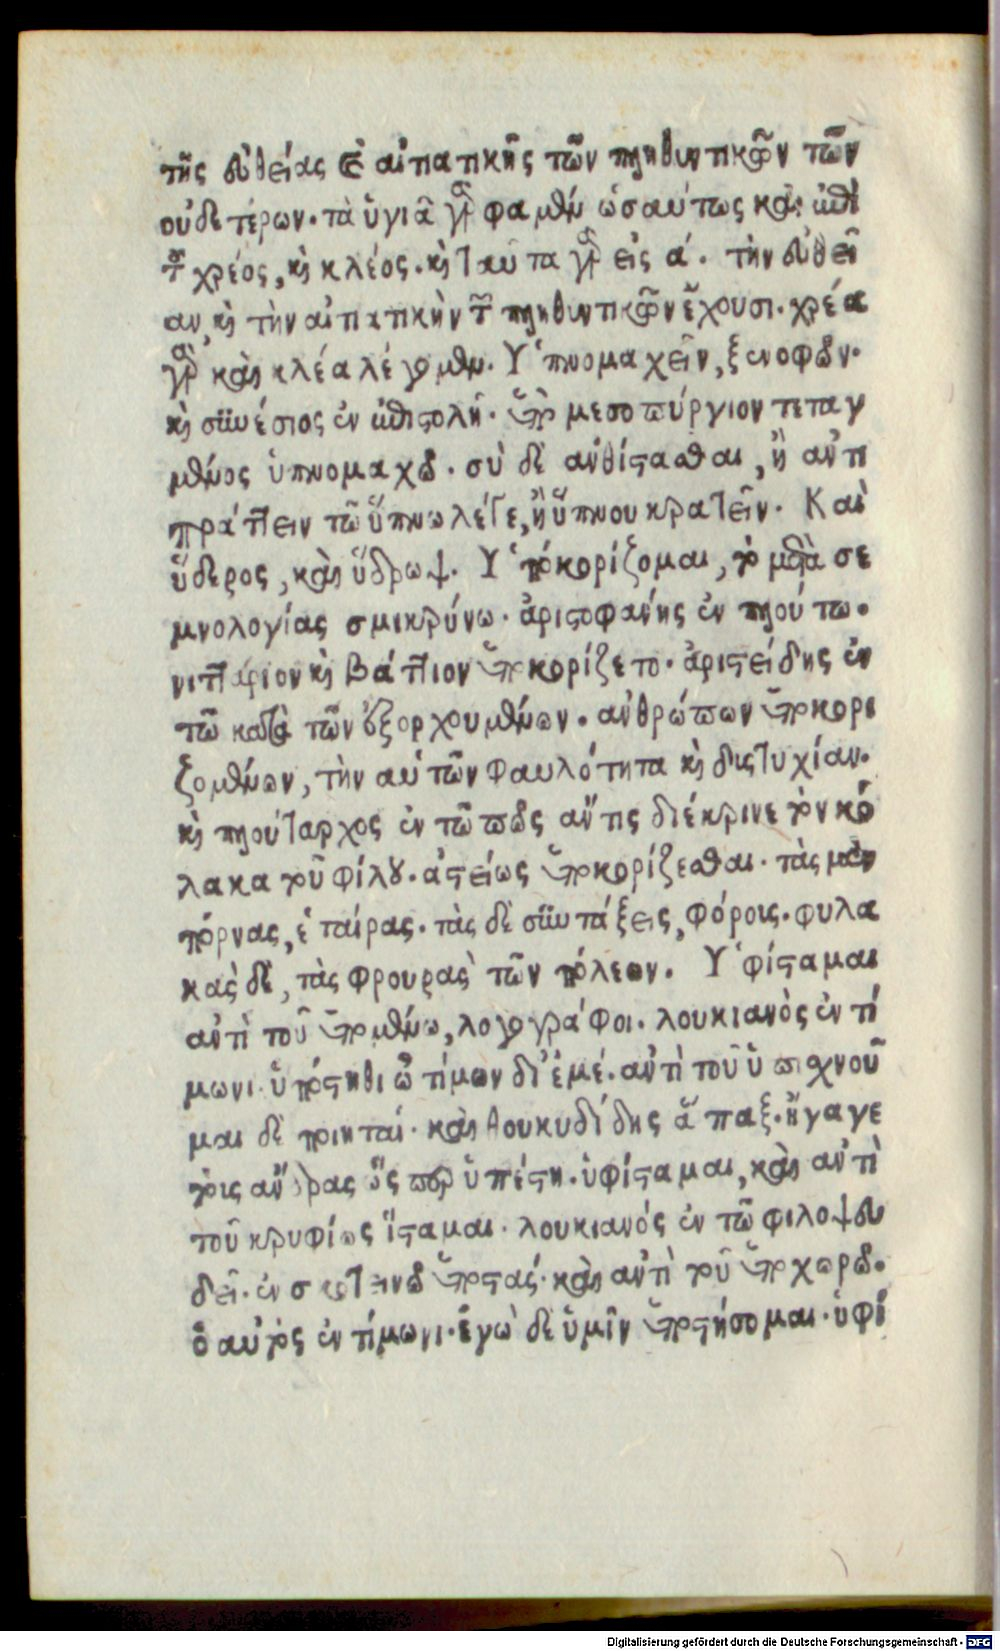 τῆς εὐθείας καὶ αἰτιατικῆς τῶν πληθυντικῶν τῶν
οὐδετέρων. τὰ ὑγιᾶ γάρ φαμεν ὡσαύτως καὶ ἐπὶ
τοῦ χρέος, καὶ κλέος. καὶ ταῦτα γὰρ εἰς ά. τὴν εὐθεῖ
αν, καὶ τὴν αἰτιατικὴν τῶν πληθυντικῶν ἔχουσι. χρέα
γὰρ καὶ κλέα λέγομεν. Ὑπνομαχεῖν, ξενοφῶν.
καὶ συνέσιος ἐν ἐπιστολῇ. ὑπὸ μεσοπύργιον τεταγ
μένος ὑπνομαχῶ. σὺ δὲ ἀνθίστασθαι, ἢ ἀντι
πράττειν τῶ ὕπνω λέγε, ἢ ὕπνου κρατεῖν. Καὶ
ὕδερος, καὶ ὕδρωψ. Ὑποκορίζομαι, τὸ μετὰ σε
μνολογίας σμικρύνω. ἀριστοφάνης ἐν πλούτω.
νιττάριον καὶ βάττιον ὑποκορίζετο. ἀριστείδης ἐν
τῶ κατὰ τῶν ἐξορχουμένων. ἀνθρώπων ὑποκορι
ζομένων, τὴν αὑτῶν φαυλότητα καὶ δυστυχίαν.
καὶ πλούταρχος ἐν τῶ πῶς ἄν τις διέκρινε τὸν κό
λακα τοῦ φίλου. ἀστείως ὑποκορίζεσθαι. τὰς μὲν
πόρνας, ἑταίρας. τὰς δὲ συντάξεις, φόροις. φυλα
κὰς δὲ, τὰς φρουρὰς τῶν πόλεων. Ὑφίσταμαι
ἀντὶ τοῦ ὑπομένω, λογογράφοι. λουκιανὸς ἐν τί
μωνι. ὑπόστηθι ὦ τίμων δι' ἐμέ. ἀντὶ τοῦ ὑπισχνοῦ
μαι δὲ ποιηταί. καὶ θουκυδίδης ἅπαξ. ἤγαγε
τοις ἄνδρας ὥσπερ ὑπέστη. ὑφίσταμαι, καὶ ἀντὶ
τοῦ κρυφίως ἵσταμαι. λουκιανός ἐν τῶ φιλοψευ
δεῖ. ἐν σκοτεινῶ ὑποστάς. καὶ ἀντὶ τοῦ ὑποχωρῶ.
ὁ αὐτὸς ἐν τίμωνι. ἐγὼ δὲ ὑμῖν ὑποστήσομαι. ὑφί
Digitalisierung gefördert durch die Deutsche Forschungsgemeinschaft - DFG